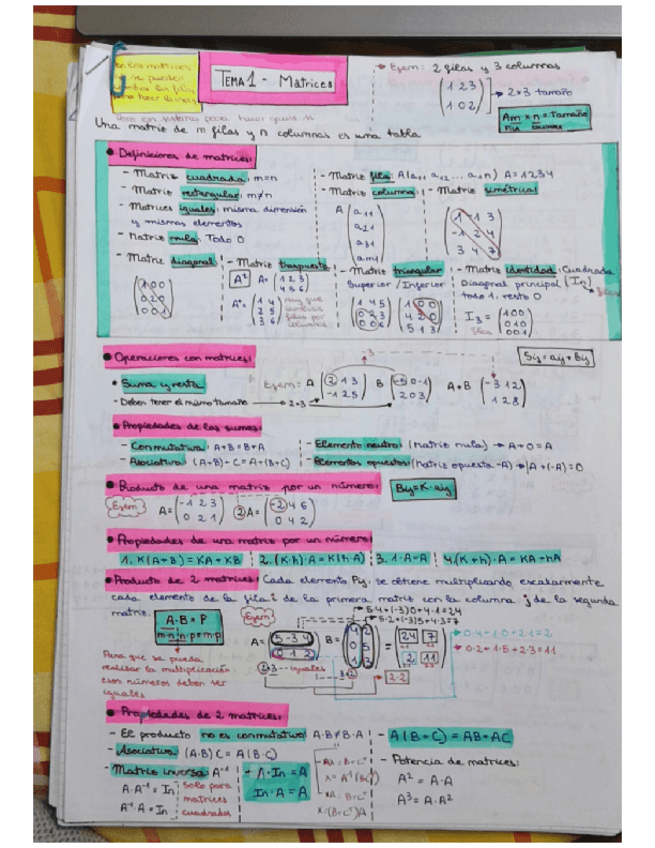 TEMA 1 - Matrices
Ejem: 2 filas y 3 columnas
(1 2 3)
(1 0 2)
→ 2×3 tamaño
Am × n = Tamaño
Una matriz de m filas y n columnas es una tabla
Definiciones de matrices:
- Matriz cuadrada: m=n
- Matriz rectangular: m≠n
- Matrices iguales: misma dimensión
y mismos elementos
- Matriz nula: Todo 0
- Matriz fila: A(a11 a12 ... a1n) A = 1 2 3 4
- Matriz columna:
A (a11
a21
a31
am1)
- Matriz simétrica:
-1 2 4
3 4 7
- Matriz diagonal
(1 0 0
0 2 0
0 0 1)
- Matriz traspuesta
A= 1 2 3
4 5 6
1 4
2 5
3 6
- Matriz triangular
Superior / Inferior
(1 4 5
0 2 3
0 0 6)
4 2 0
5 1 3
- Matriz identidad: Cuadrada
Diagonal principal (In)
todo 1, resto 0
I3 = (1 0 0
0 1 0
0 0 1)
Operaciones con matrices:
Sij = aij + bij
• Suma y resta
- Deben tener el mismo tamaño → 2×3
Ejem: A (2 1 3
-1 2 5)
B (-5 0 -1
2 0 3)
A+B (-3 1 2
1 2 8)
-3
Propiedades de las sumas:
- Conmutativa: A+B=B+A
- Asociativa: (A+B)+C=A+(B+C)
- Elemento neutro: (matriz nula) → A+0=A
- Elementos opuestos: (matriz opuesta -A) → A+(-A)=0
Producto de una matriz por un número:
Bij=K·aij
Ejem
A= (-1 2 3
0 2 1)
2A= (-2 4 6
0 4 2)
Propiedades de una matriz por un número:
1. K(A+B)=KA+KB
2. (K·h)·A=K(h·A)
3. 1·A=A
4. (K+h)·A=KA+hA
Producto de 2 matrices: Cada elemento Pij se obtiene multiplicando escalarmente
cada elemento de la fila i de la primera matriz con la columna j de la segunda
matriz.
A·B = P
m·n n·p = m·p
Ejem
A= 5 -3 4
0 1 2
B=
4 2
0 5
1 3
= 24 7
2 11
5·4+(-3)0+4·1=24
5·2+(-3)5+4·3=7
0·4+1·0+2·1=2
0·2+1·5+2·3=11
2·3 iguales 3·2
2·2
Para que se pueda
realizar la multiplicación
esos números deben ser
iguales
Propiedades de 2 matrices:
- El producto no es conmutativo: A·B≠B·A
- Asociativa: (A·B)C=A(B·C)
- Matriz inversa: A⁻¹
A·A⁻¹=In
A⁻¹·A=In
Solo para
matrices
cuadradas
A·In=A
In·A=A
- A(B+C)=AB+AC
- Potencia de matrices:
A²=A·A
A³=A·A²